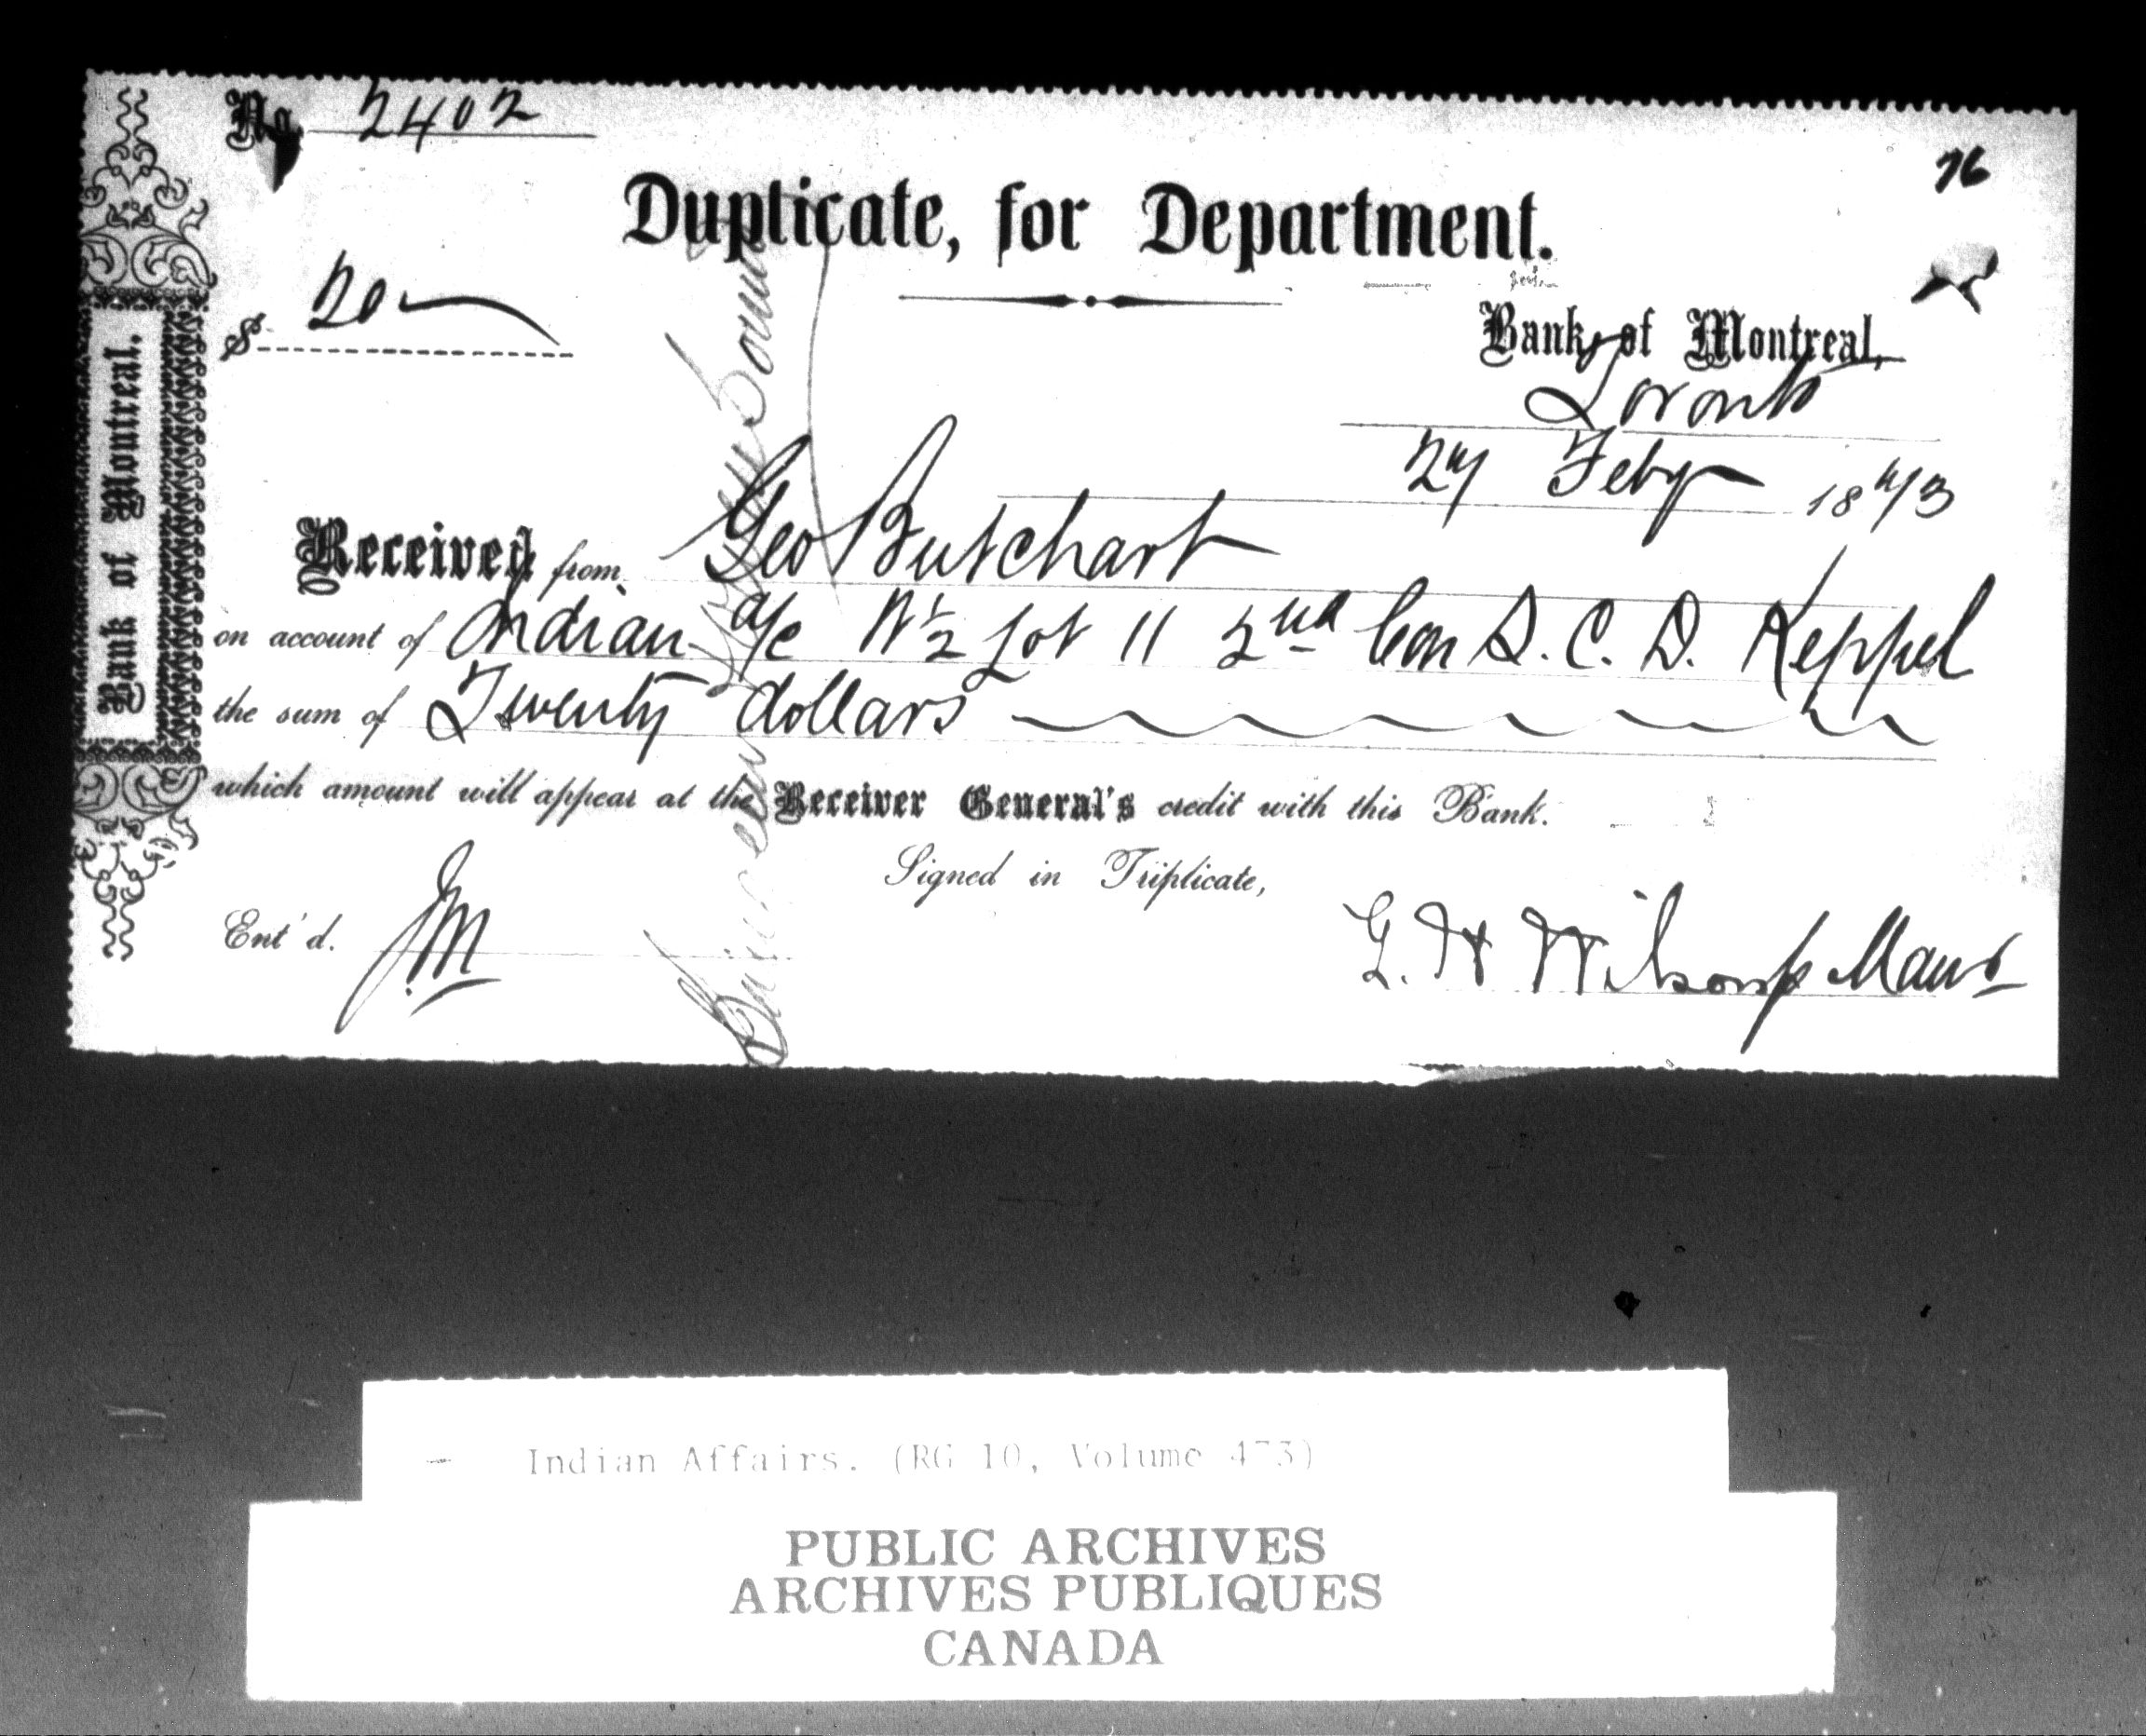 No. 2402
76
Duplicate, for Department.
$ 20
Bank of Montreal,
Toronto
27 Feby 1873
Received from Geo Butchart
on account of Indian a/c N ½ Lot 11 2nd Con S. C. D. Keppel
the sum of Twenty dollars
which amount will appear at the Receiver General's credit with this Bank.
Signed in Triplicate,
Ent'd. J.M
G. W Wilson
Bank of Montreal.
Indian Affairs. (RG 10, Volume 473)
PUBLIC ARCHIVES
ARCHIVES PUBLIQUES
CANADA